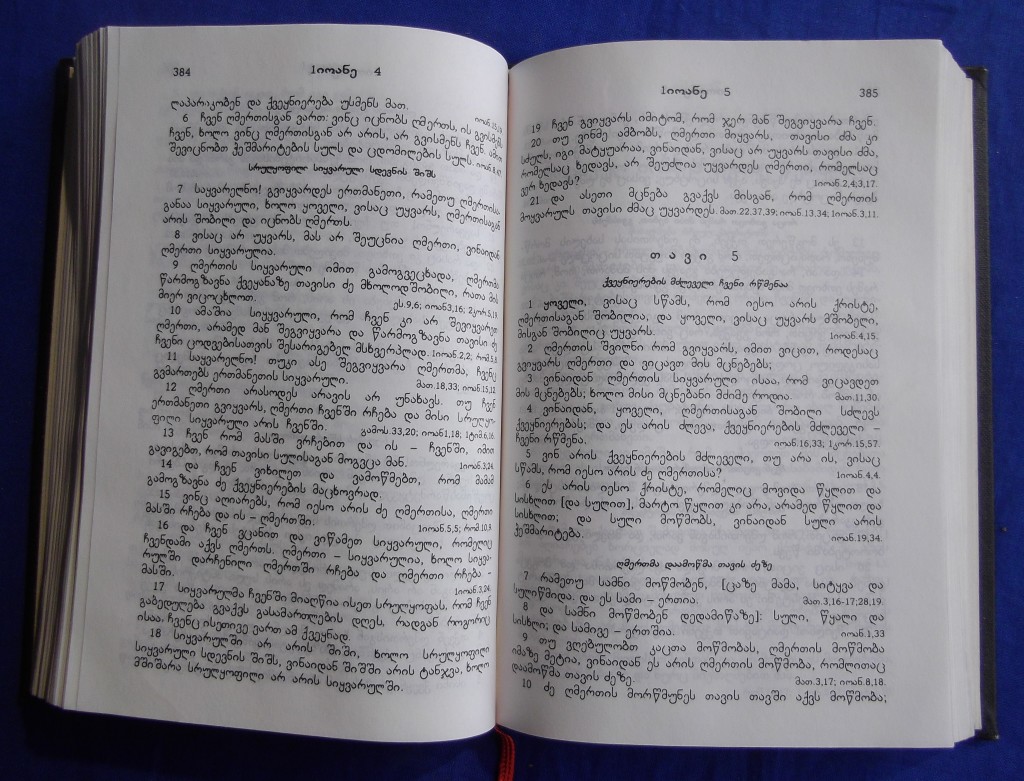 384
1იოანე 4
ლაპარაკობენ და ქვეყნიერება უსმენს მათ.
6 ჩვენ ღმერთისგან ვართ: ვინც იცნობს ღმერთს, ის გვისმენს
ჩვენ, ხოლო ვინც ღმერთისგან არ არის, არ გვისმენს ჩვენ. ამით
შევიცნობთ ჭეშმარიტების სულს და ცდომილების სულს. იოან.8,47.
სრულყოფილი სიყვარული სდევნის შიშს
7 საყვარელნო! გვიყვარდეს ერთმანეთი, რამეთუ ღმერთისა-
განაა სიყვარული, ხოლო ყოველი, ვისაც უყვარს, ღმერთისაგან
არის შობილი და იცნობს ღმერთს.
8 ვისაც არ უყვარს, მას არ შეუცნია ღმერთი, ვინაიდან
ღმერთი სიყვარულია.
9 ღმერთის სიყვარული იმით გამოგვეცხადა, ღმერთმა
წარმოგზავნა ქვეყანაზე თავისი ძე მხოლოდშობილი, რათა მის
მიერ ვიცოცხლოთ. ეს.9,6; იოან3,16; 2კორ.5,19.
10 ამაშია სიყვარული, რომ ჩვენ კი არ შევიყვარეთ
ღმერთი, არამედ მან შეგვიყვარა და წარმოგზავნა თავისი ძე
ჩვენი ცოდვებისათვის შესარიგებელ მსხვერპლად. 1იოან.2,2; რომ.5,8.
11 საყვარელნო! თუკი ასე შეგვიყვარა ღმერთმა, ჩვენც
გვმართებს ერთმანეთის სიყვარული. მათ.18,33; იოან.15,12.
12 ღმერთი არასოდეს არავის არ უნახავს. თუ ჩვენ
ერთმანეთი გვიყვარს, ღმერთი ჩვენში რჩება და მისი სრულყო-
ფილი სიყვარული არის ჩვენში. გამოს.33,20; იოან1,18; 1ტიმ.6,16.
13 ჩვენ რომ მასში ვრჩებით და ის – ჩვენში, იმით
გავიგებთ, რომ თავისი სულისაგან მოგვცა მან. 1იოან.3,24.
14 და ჩვენ ვიხილეთ და ვამოწმებთ, რომ მამამ
გამოგზავნა ძე ქვეყნიერების მაცხოვრად.
15 ვინც აღიარებს, რომ იესო არის ძე ღმერთისა, ღმერთი
მასში რჩება და ის – ღმერთში. 1იოან.5,5; რომ.10,9.
16 და ჩვენ ვცანით და ვიწამეთ სიყვარული, რომელიც
ჩვენდამი აქვს ღმერთს. ღმერთი – სიყვარულია, ხოლო სიყვა-
რულში დარჩენილი ღმერთში რჩება და ღმერთი რჩება –
მასში. 1იოან.3,24.
17 სიყვარულმა ჩვენში მიაღწია ისეთ სრულყოფას, რომ ჩვენ
გაბედულება გვაქვს გასამართლების დღეს, რადგან როგორიც
ისაა, ჩვენც ისეთივე ვართ ამ ქვეყნად.
18 სიყვარულში არ არის შიში, ხოლო სრულყოფილი
სიყვარული სდევნის შიშს, ვინაიდან შიშში არის ტანჯვა, ხოლო
მშიშარა სრულყოფილი არ არის სიყვარულში.
1იოანე 5
385
19 ჩვენ გვიყვარს იმიტომ, რომ ჯერ მან შეგვიყვარა ჩვენ.
20 თუ ვინმე ამბობს, ღმერთი მიყვარს, თავისი ძმა კი
სძულს, იგი მატყუარაა, ვინაიდან, ვისაც არ უყვარს თავისი ძმა,
რომელსაც ხედავს, არ შეუძლია უყვარდეს ღმერთი, რომელსაც
ვერ ხედავს? 1იოან.2,4;3,17.
21 და ასეთი მცნება გვაქვს მისგან, რომ ღმერთის
მოყვარულს თავისი ძმაც უყვარდეს. მათ.22,37,39; იოან.13,34; 1იოან.3,11.
თავი 5
ქვეყნიერების მძლეველი ჩვენი რწმენაა
1 ყოველი, ვისაც სწამს, რომ იესო არის ქრისტე,
ღმერთისაგან შობილია, და ყოველი, ვისაც უყვარს მშობელი,
მისგან შობილიც უყვარს. 1იოან.4,15.
2 ღმერთის შვილნი რომ გვიყვარს, იმით ვიცით, როდესაც
გვიყვარს ღმერთი და ვიცავთ მის მცნებებს;
3 ვინაიდან ღმერთის სიყვარული ისაა, რომ ვიცავდეთ
მის მცნებებს; ხოლო მისი მცნებანი მძიმე როდია. მათ.11,30.
4 ვინაიდან, ყოველი, ღმერთისაგან შობილი სძლევს
ქვეყნიერებას; და ეს არის ძლევა, ქვეყნიერების მძლეველი –
ჩვენი რწმენა. იოან.16,33; 1კორ.15,57.
5 ვინ არის ქვეყნიერების მძლეველი, თუ არა ის, ვისაც
სწამს, რომ იესო არის ძე ღმერთისა? 1იოან.4,4.
6 ეს არის იესო ქრისტე, რომელიც მოვიდა წყლით და
სისხლით [და სულით], მარტო წყლით კი არა, არამედ წყლით და
სისხლით; და სული მოწმობს, ვინაიდან სული არის
ჭეშმარიტება. იოან.19,34.
ღმერთმა დაამოწმა თავის ძეზე
7 რამეთუ სამნი მოწმობენ, [ცაზე მამა, სიტყვა და
სულიწმიდა. და ეს სამი – ერთია. მათ.3,16-17;28,19.
8 და სამნი მოწმობენ დედამიწაზე]: სული, წყალი და
სისხლი; და სამივე – ერთშია. იოან.1,33
9 თუ ვღებულობთ კაცთა მოწმობას, ღმერთის მოწმობა
იმაზე მეტია, ვინაიდან ეს არის ღმერთის მოწმობა, რომლითაც
დაამოწმა თავის ძეზე. მათ.3,17; იოან.8,18.
10 ძე ღმერთის მორწმუნეს თავის თავში აქვს მოწმობა;